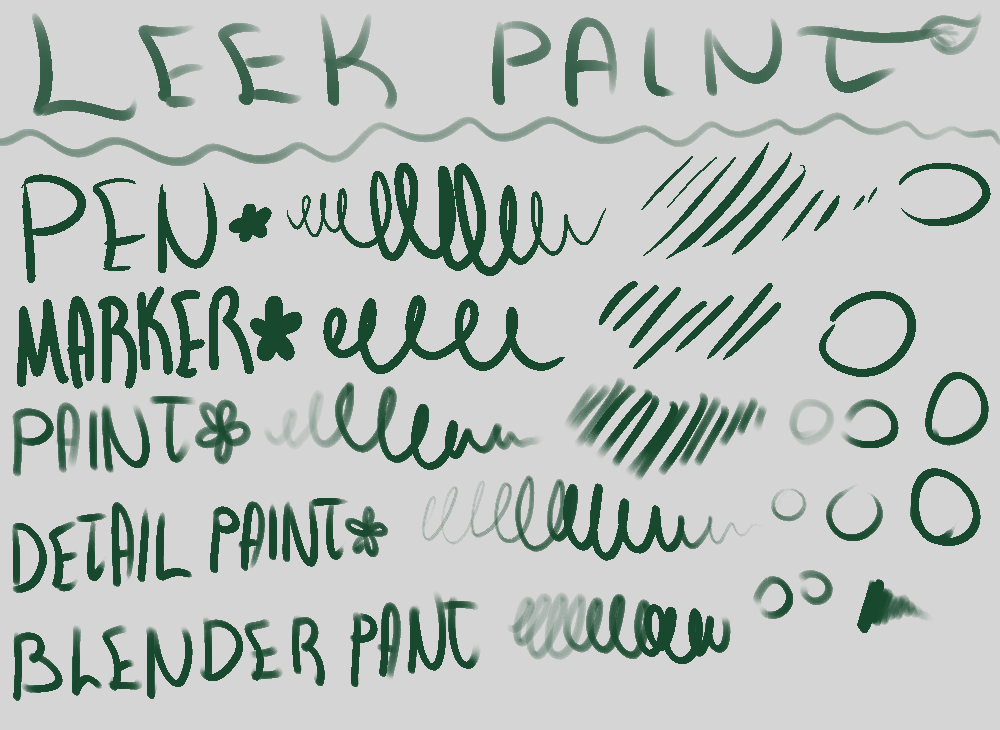 LEEK PAINT
PEN
MARKER
PAINT
DETAIL PAINT
BLENDER PANT